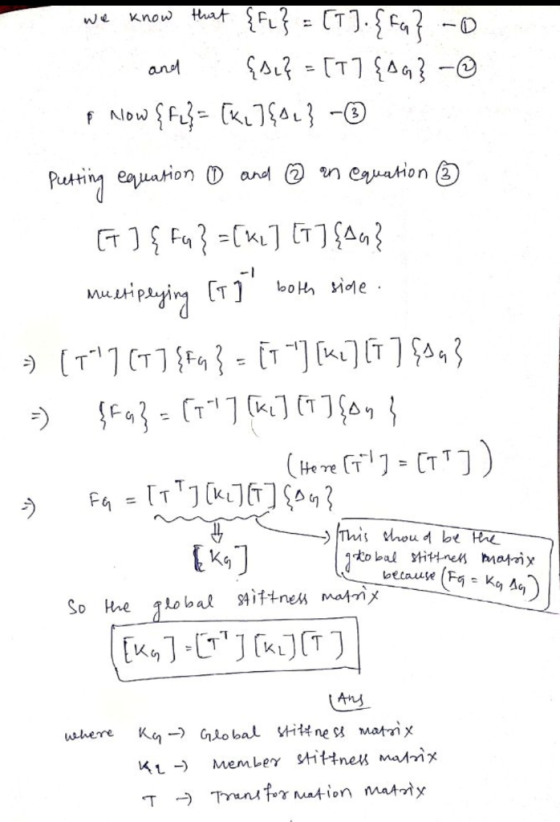 we know that {F_L} = [T].{F_G} -①
and {Δ_L} = [T] {Δ_G} -②
Now {F_L} = [K_L]{Δ_L} -③
Putting equation ① and ② in equation ③
[T] {F_G} = [K_L] [T] {Δ_G}
Multiplying [T]^-1 both side.
⇒) [T^-1] [T] {F_G} = [T^-1] [K_L] [T] {Δ_G}
⇒) {F_G} = [T^-1] [K_L] [T] {Δ_G}
(Here [T^-1] = [T^T])
⇒) F_G = [T^T] [K_L] [T] {Δ_G}
⇓
[K_G]
→ This shoud be the
global stiffness matrix
because (F_G = K_G Δ_G)
So the global stiffness matrix
[K_G] = [T^T] [K_L] [T]
Ans
where K_G → Global stiffness matrix
K_L → Member stiffness matrix
T → Transformation matrix